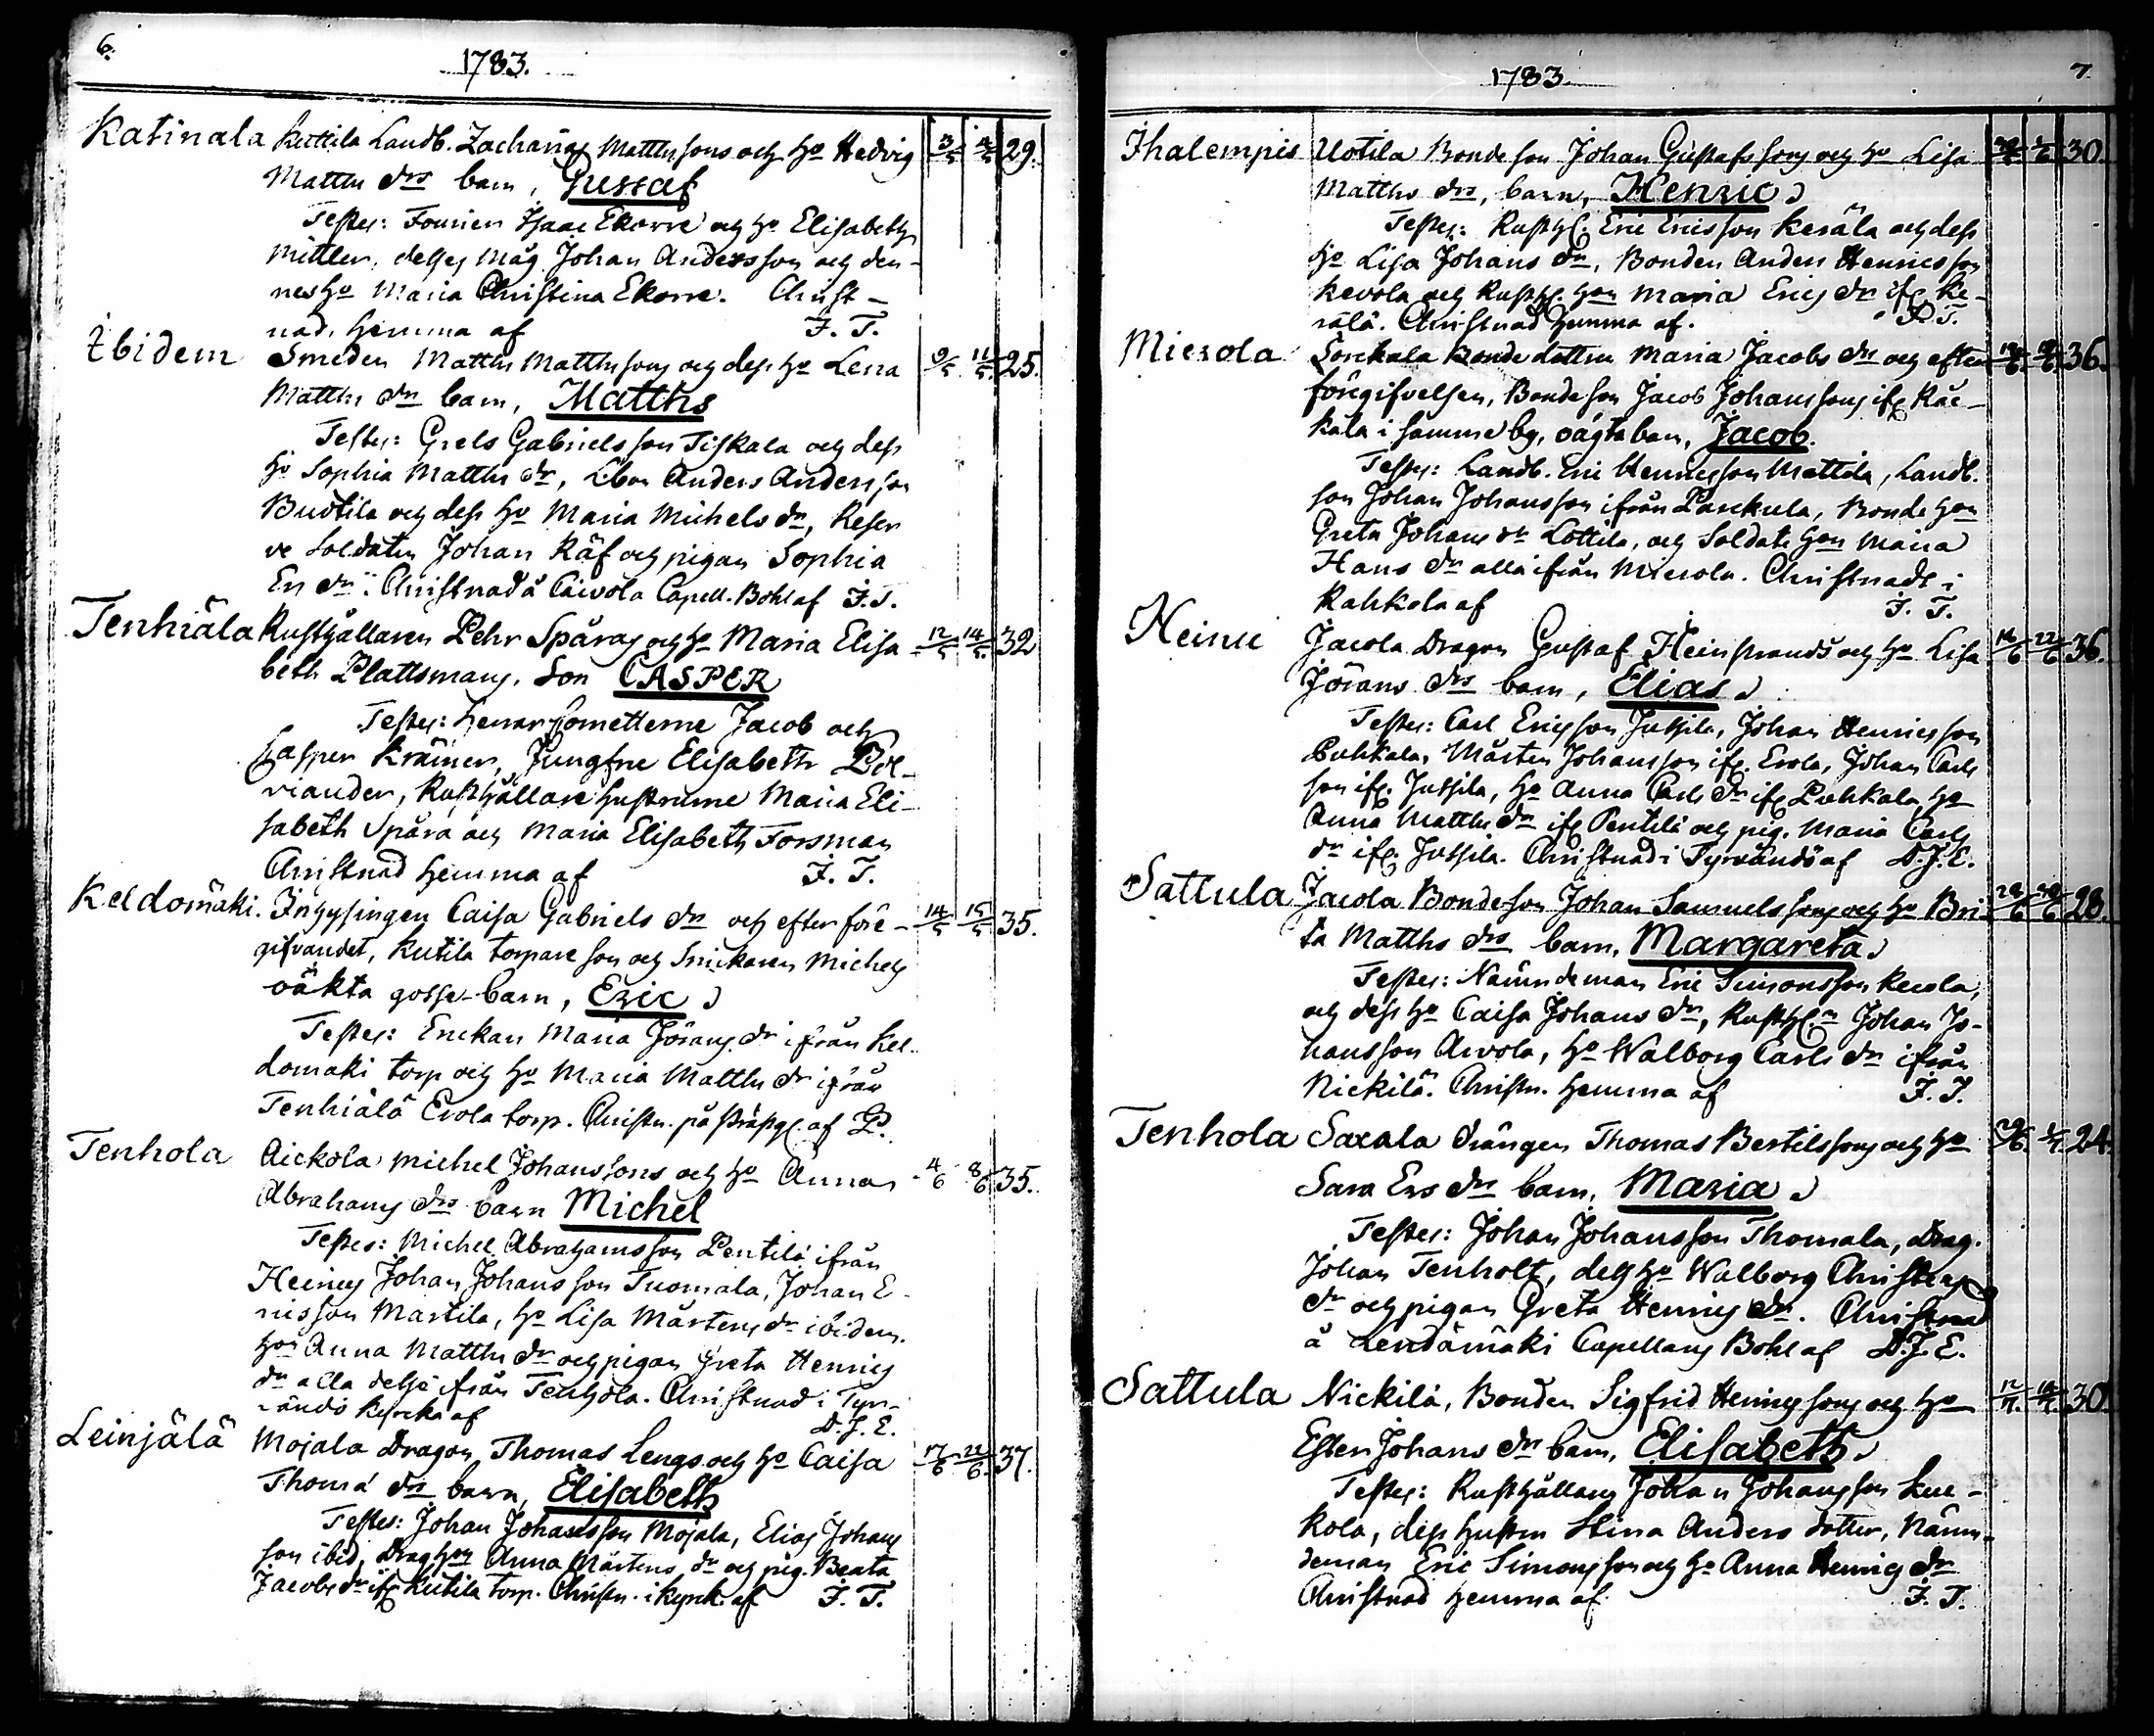 6.
1783.
Katinala Kuttila Landb. Zacharias Matthssons och Ho Hedvig 3/5 4/5 29.
Matths drs barn, Gustaf
Testes: Fourier Isaac Ekorre och Ho Elisabeth
Mittler, desses måg Johan Andersson och den-
nes Ho Maria Christina Ekorre. Christ-
nad hemma af J. T.
Ibidem Smeden Matths Matthssons och dess Ho Lena 9/5 11/5 25.
Matths dr barn, Matths
Testes: Grels Gabrielsson Tiskala och dess
Ho Sophia Matths dr, Anders Andersson
Buotila och dess Ho Maria Michels dr, Reser
ve Soldaten Johan Räf och pigan Sophia
Ers dr. Christnad å Caivola Capell. Bohl af J. T.
Tenhiälä Rusthållaren Pehr Spåras och Ho Maria Elisa- 12/5 14/5 32
beth Plattsmans, Son CASPER
Testes: Herrar Cornetterne Jacob och
Casper Krämer, Jungfru Elisabeth Pol-
viander, Rusthållare hustrurne Maria Eli-
sabeth Spåra och Maria Elisabeth Forsman
Christnad hemma af J. T.
Keldomäki. Inhysingen Caisa Gabriels dr och efter före- 14/5 15/5 35.
gifvandet, Kutila torpare son och Snickaren Michels
oäkta gosse-barn, Eric
Testes: Enckan Maria Jörans dr ifrån Kel-
domäki torp och Ho Maria Matths dr ifrån
Tenhiälä Erola torp. Christn. på Präsg. af P.
Tenhola Aickola Michel Johanssons och Ho Anna 4/6 8/6 35.
Abrahams drs barn Michel
Testes: Michel Abrahamsson Pentilä ifrån
Heinus Johan Johansson Tuomala, Johan E-
ricsson Martila, Ho Lisa Mårtens dr ibidem.
Hon Anna Matths dr och pigan Greta Henrics
dr alla desse ifrån Tenhola. Christnad i Tyr-
vändö kyrcka af D. J. E.
Leinjälä Mojala Dragon Thomas Lengs och Ho Caisa 17/6 22/6 37.
Thomæ drs barn, Elisabeth
Testes: Johan Johansson Mojala, Elias Johans
son ibid, Drag. Hon Anna Mårtens dr och pig. Beata
Jacobs dr ifr. Kutila torp. Christn. i kyrck. af J. T.
7.
1783.
Ihalempis Uotila Bonde son Johan Gustafssons och Ho Lisa 30.
Matths drs, barn, Henric
Testes: Rusthl. Eric Ericsson Keräla och dess
Ho Lisa Johans dr, Bonden Anders Henricsson
Kevola och Rusthl. Hon Maria Erics dr ifr. Ke-
rälä. Christnad hemma af. J. T.
Mierola Sorckala Bonde dottren Maria Jacobs drs och efter 36.
föregifvelsen, Bonde son Jacob Johanssons ifr. Räc-
kälä i samma by, oägta barn, Jacob.
Testes: Landb. Eric Henricsson Mattila, Landb.
son Johan Johansson ifrån Parckula, Bonde hon
Greta Johans dr Lottila, och Soldats Hon Maria
Hans dr alla ifrån Mierola. Christnadt i
Rahkola af J. T.
Heinu Jacola Dragon Gustaf Heinstrands och Ho Lisa 22/6 36.
Jörans drs barn, Elias
Testes: Carl Ericsson Jussila, Johan Henricsson
Puhkala, Mårten Johansson ifr. Erola, Johan Carls
son ifr. Jussila, Ho Anna Carls dr ifr Puhkala, Ho
Anna Matths dr ifr Pentilä och pig. Maria Carls
dr ifr. Jussila. Christnad i Tyrvändö af D. J. E.
Sattula Jacola Bondeson Johan Samuelssons och Ho Bri- 28.
ta Matths drs barn, Margareta
Testes: Nämndeman Eric Simonsson Kecola,
och dess Ho Caisa Johans dr, Rusthln Johan Jo-
hansson Arvola, Ho Walborg Carls dr ifrån
Nickilä. Christn. hemma af J. T.
Tenhola Saxala Drängen Thomas Bertilssons och Ho 24.
Sara Ers drs barn, Maria
Testes: Johan Johansson Thomala, Drag.
Johan Tenholt, dess Ho Walborg Christers
dr och pigan Greta Henrics dr. Christnad
å Lendämäki Capellans Bohl af D. J. E.
Sattula Nickilä, Bonden Sigfrid Henricssons och Ho 30.
Ester Johans drs barn, Elisabeth
Testes: Rusthållaren Johan Johansson Kuc-
kola, dess hustru Stina Anders dotter, Nämn-
deman Eric Simonsson och Ho Anna Henrics dr
Christnad hemma af J. T.